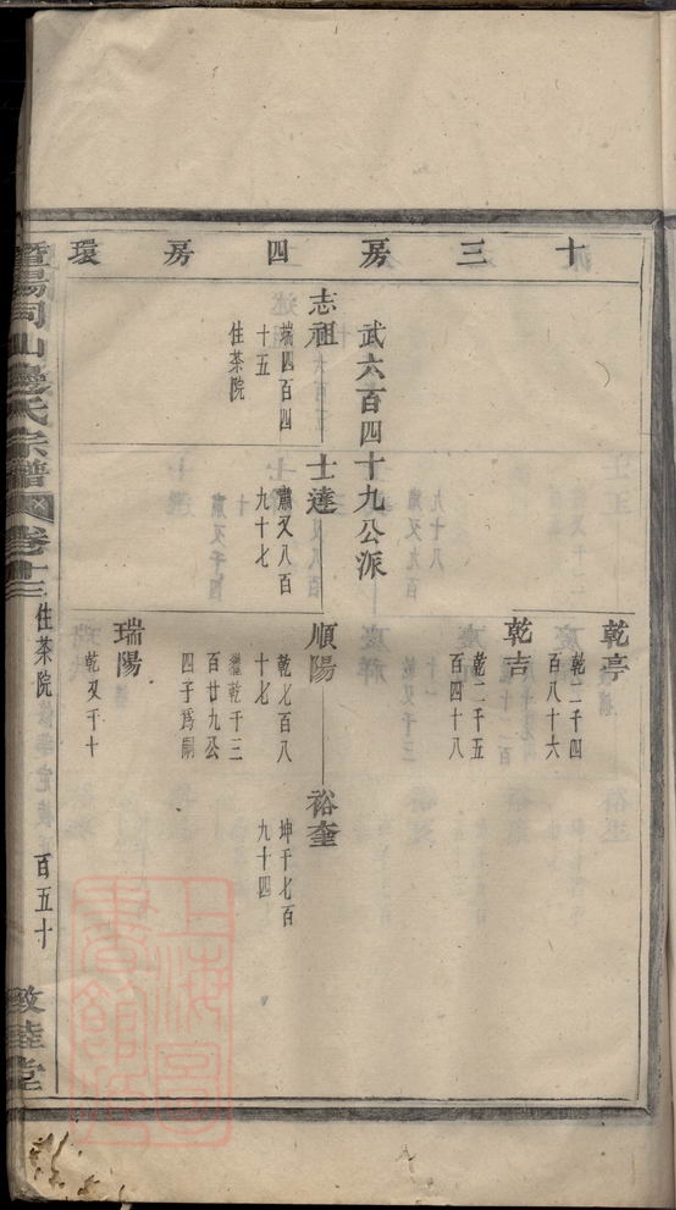 十三房四房環
乾亭
乾二千四
百八十六
乾吉
乾二千五
百四十八
武六百四十九公派
志祖
端四百四
十五
住茶院
士達
肅又八百
九十七
順陽
乾七百八
十七
繼乾千三
百廿九公
四子爲嗣
裕奎
坤千七百
九十四
瑞陽
乾又千十
暨陽同山邊氏宗譜
卷十三
住茶院
百五十
敦睦堂
上海圖書館藏